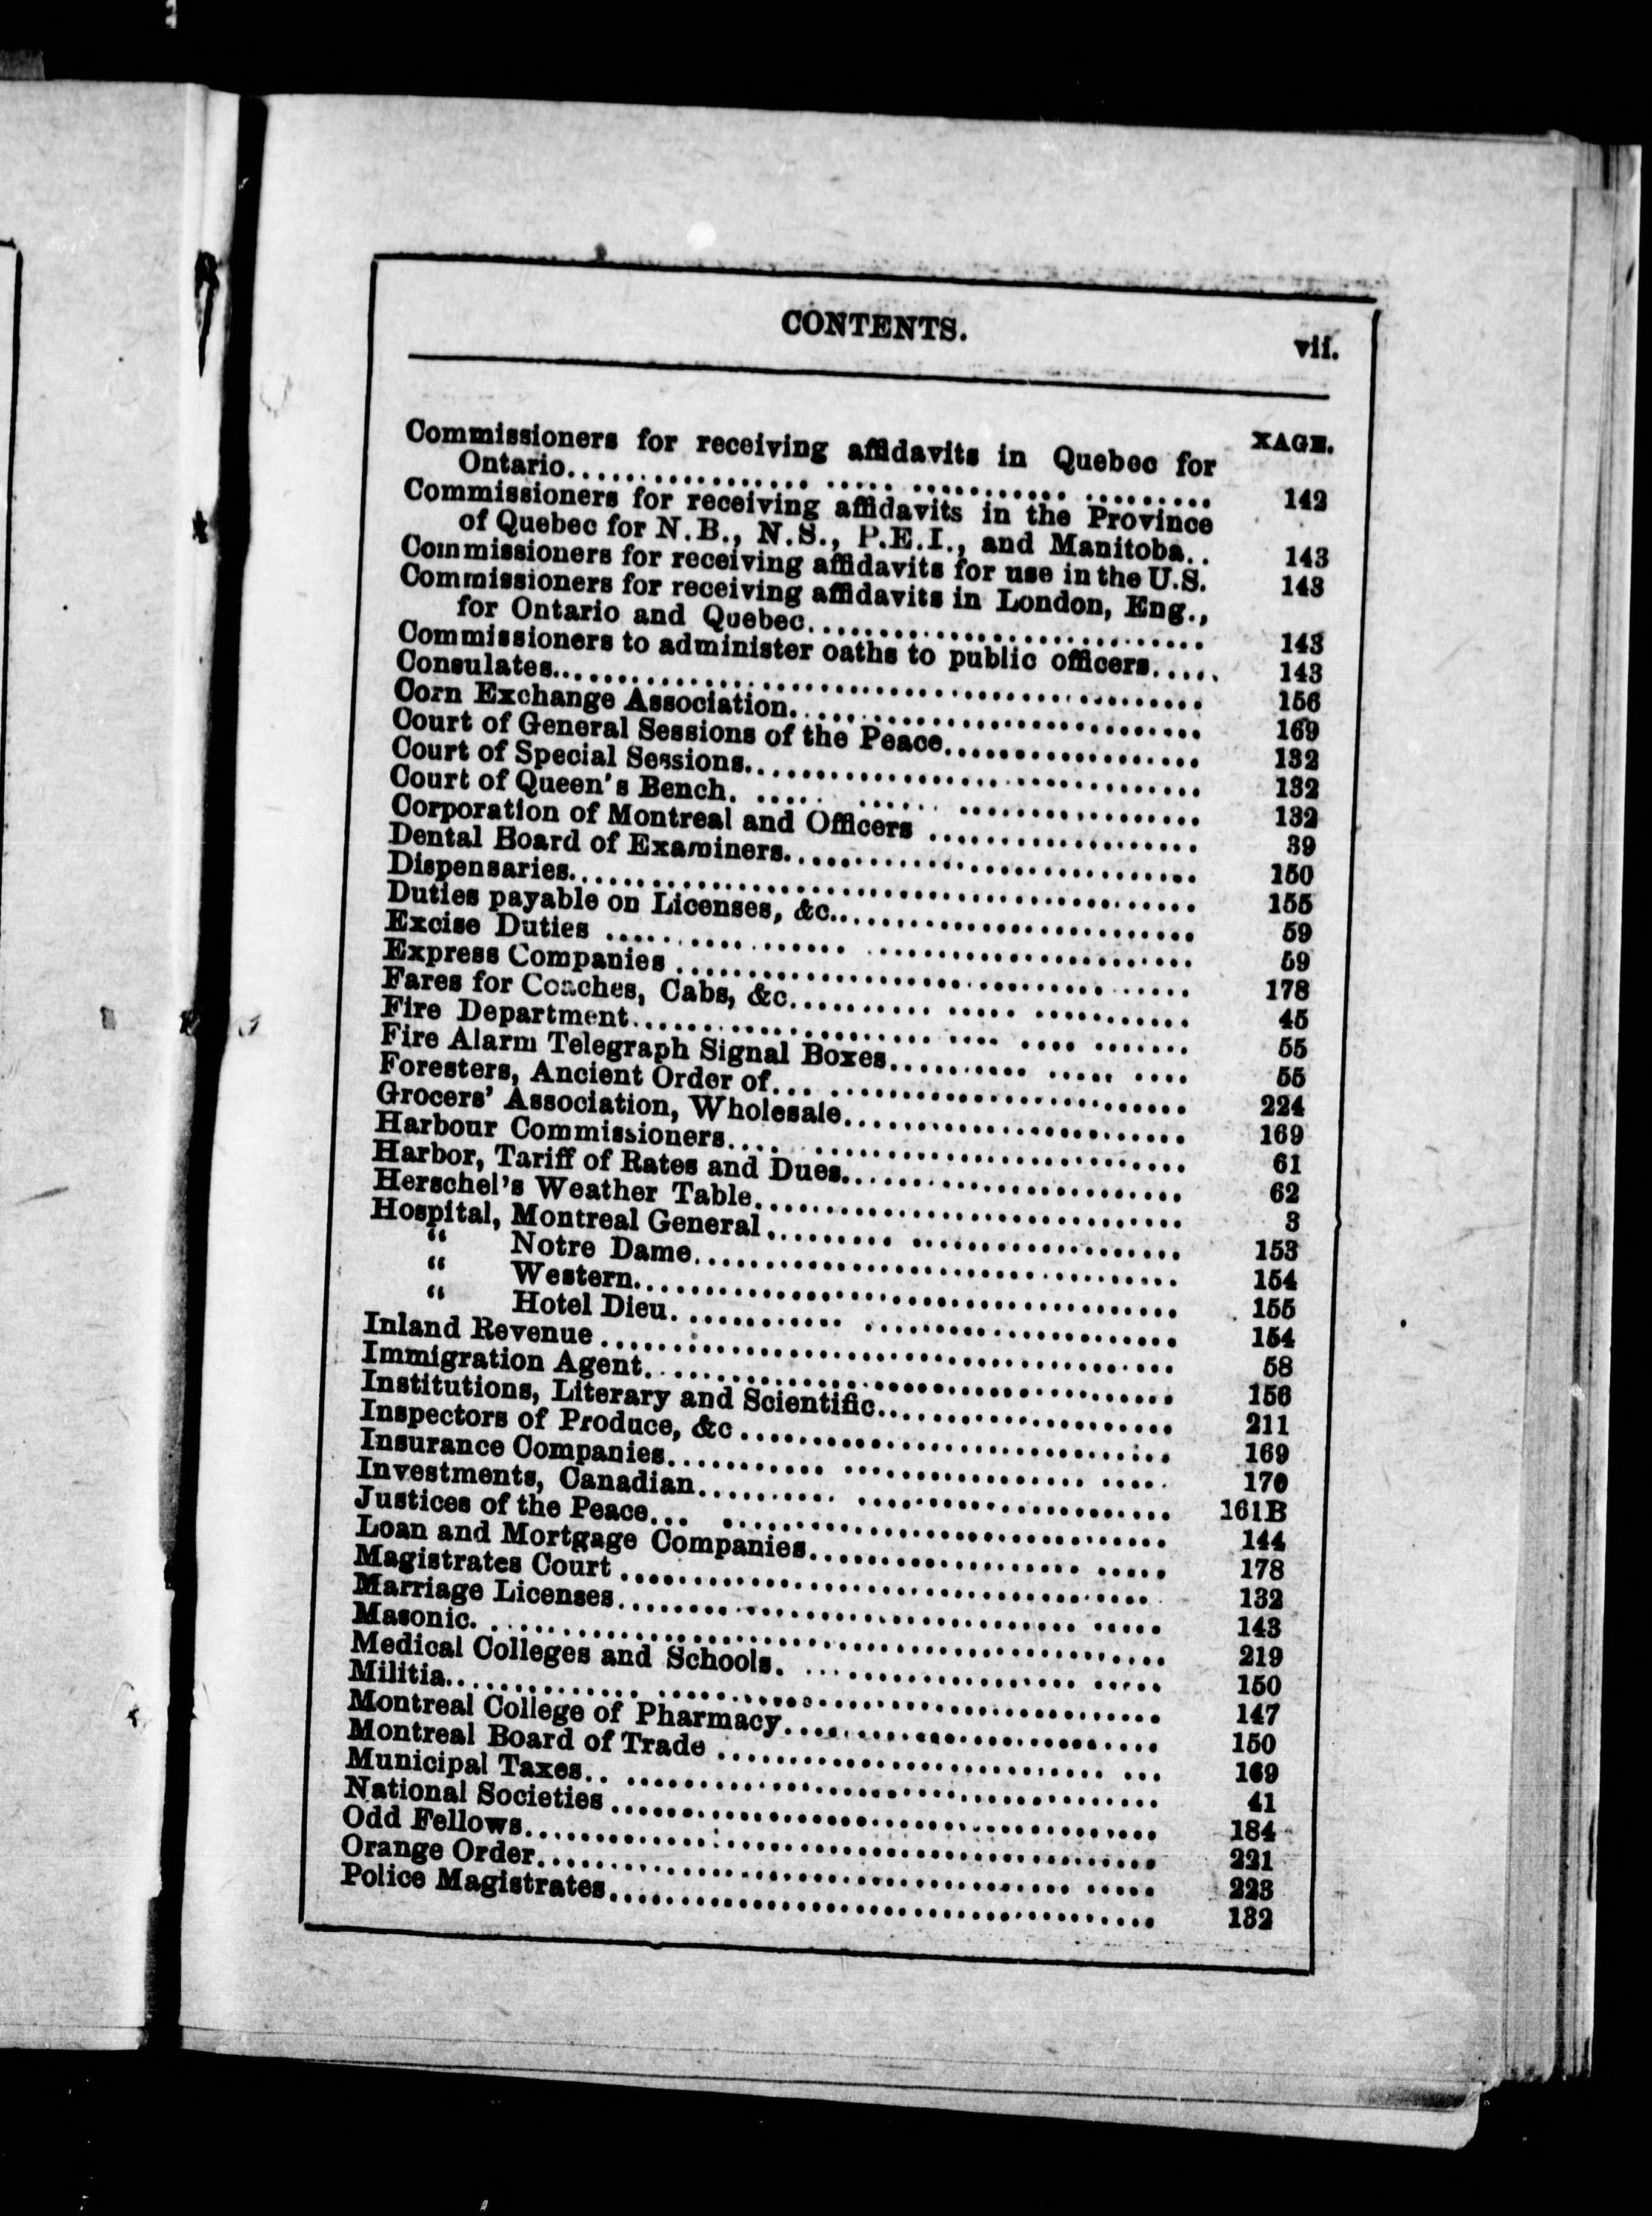 CONTENTS. vii.
XAGE.
Commissioners for receiving affidavits in Quebec for
Ontario........ 142
Commissioners for receiving affidavits in the Province
of Quebec for N.B., N.S., P.E.I., and Manitoba.. 143
Commissioners for receiving affidavits for use in the U.S. 143
Commissioners for receiving affidavits in London, Eng.,
for Ontario and Quebec........ 143
Commissioners to administer oaths to public officers..... 143
Consulates........ 156
Corn Exchange Association........ 169
Court of General Sessions of the Peace........ 132
Court of Special Sessions........ 132
Court of Queen's Bench........ 132
Corporation of Montreal and Officers ........ 39
Dental Board of Examiners........ 150
Dispensaries........ 155
Duties payable on Licenses, &c........ 59
Excise Duties ........ 59
Express Companies ........ 178
Fares for Coaches, Cabs, &c........ 45
Fire Department........ 55
Fire Alarm Telegraph Signal Boxes........ 55
Foresters, Ancient Order of........ 224
Grocers' Association, Wholesale........ 169
Harbour Commissioners........ 61
Harbor, Tariff of Rates and Dues........ 62
Herschel's Weather Table........ 3
Hospital, Montreal General........ 153
" Notre Dame........ 154
" Western........ 155
" Hotel Dieu........ 154
Inland Revenue ........ 58
Immigration Agent........ 156
Institutions, Literary and Scientific........ 211
Inspectors of Produce, &c ........ 169
Insurance Companies........ 170
Investments, Canadian........ 161B
Justices of the Peace........ 144
Loan and Mortgage Companies........ 178
Magistrates Court ........ 132
Marriage Licenses........ 143
Masonic........ 219
Medical Colleges and Schools........ 150
Militia........ 147
Montreal College of Pharmacy........ 150
Montreal Board of Trade ........ 169
Municipal Taxes........ 41
National Societies ........ 184
Odd Fellows........ 221
Orange Order........ 223
Police Magistrates........ 132